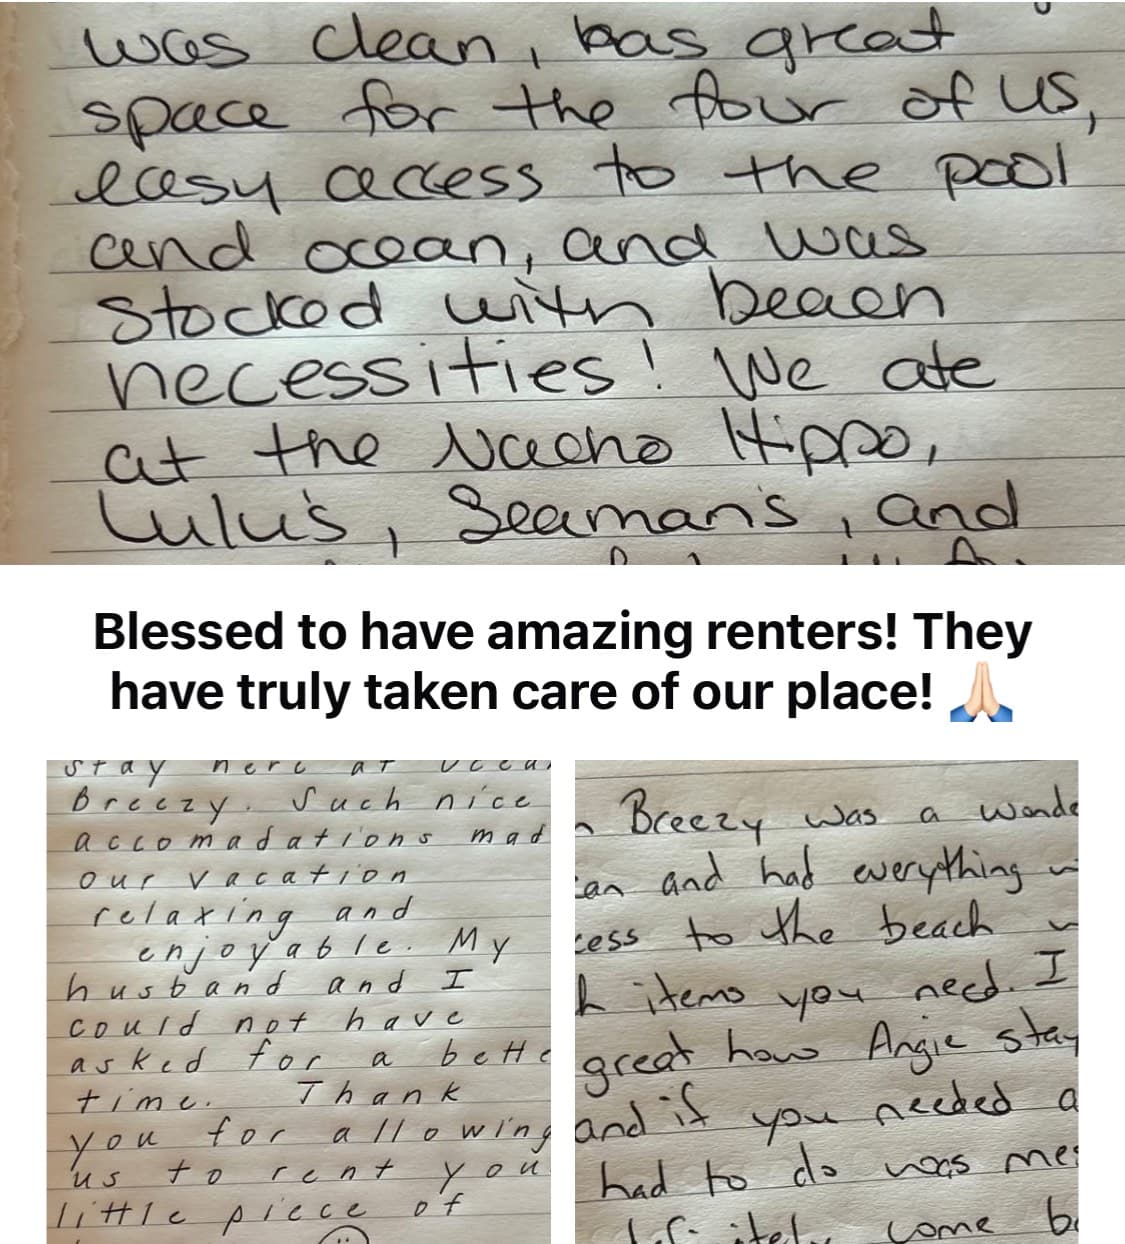 was clean, has great
space for the four of us,
easy access to the pool
and ocean, and was
stocked with beach
necessities! We ate
at the Nacho Hippo,
Lulu's, Seaman's, and
Blessed to have amazing renters! They
have truly taken care of our place! 🙏🏻
stay here at
Breezy. Such nice
accomadations mad
our vacation
relaxing and
enjoyable. My
husband and I
could not have
asked for a bette
time. Thank
you for allowing
us to rent you
little piece of
n Breezy was a wonde
ean and had everything
cess to the beach
h items you need. I
great how Angie stay
and if you needed a
had to do was mes
come b